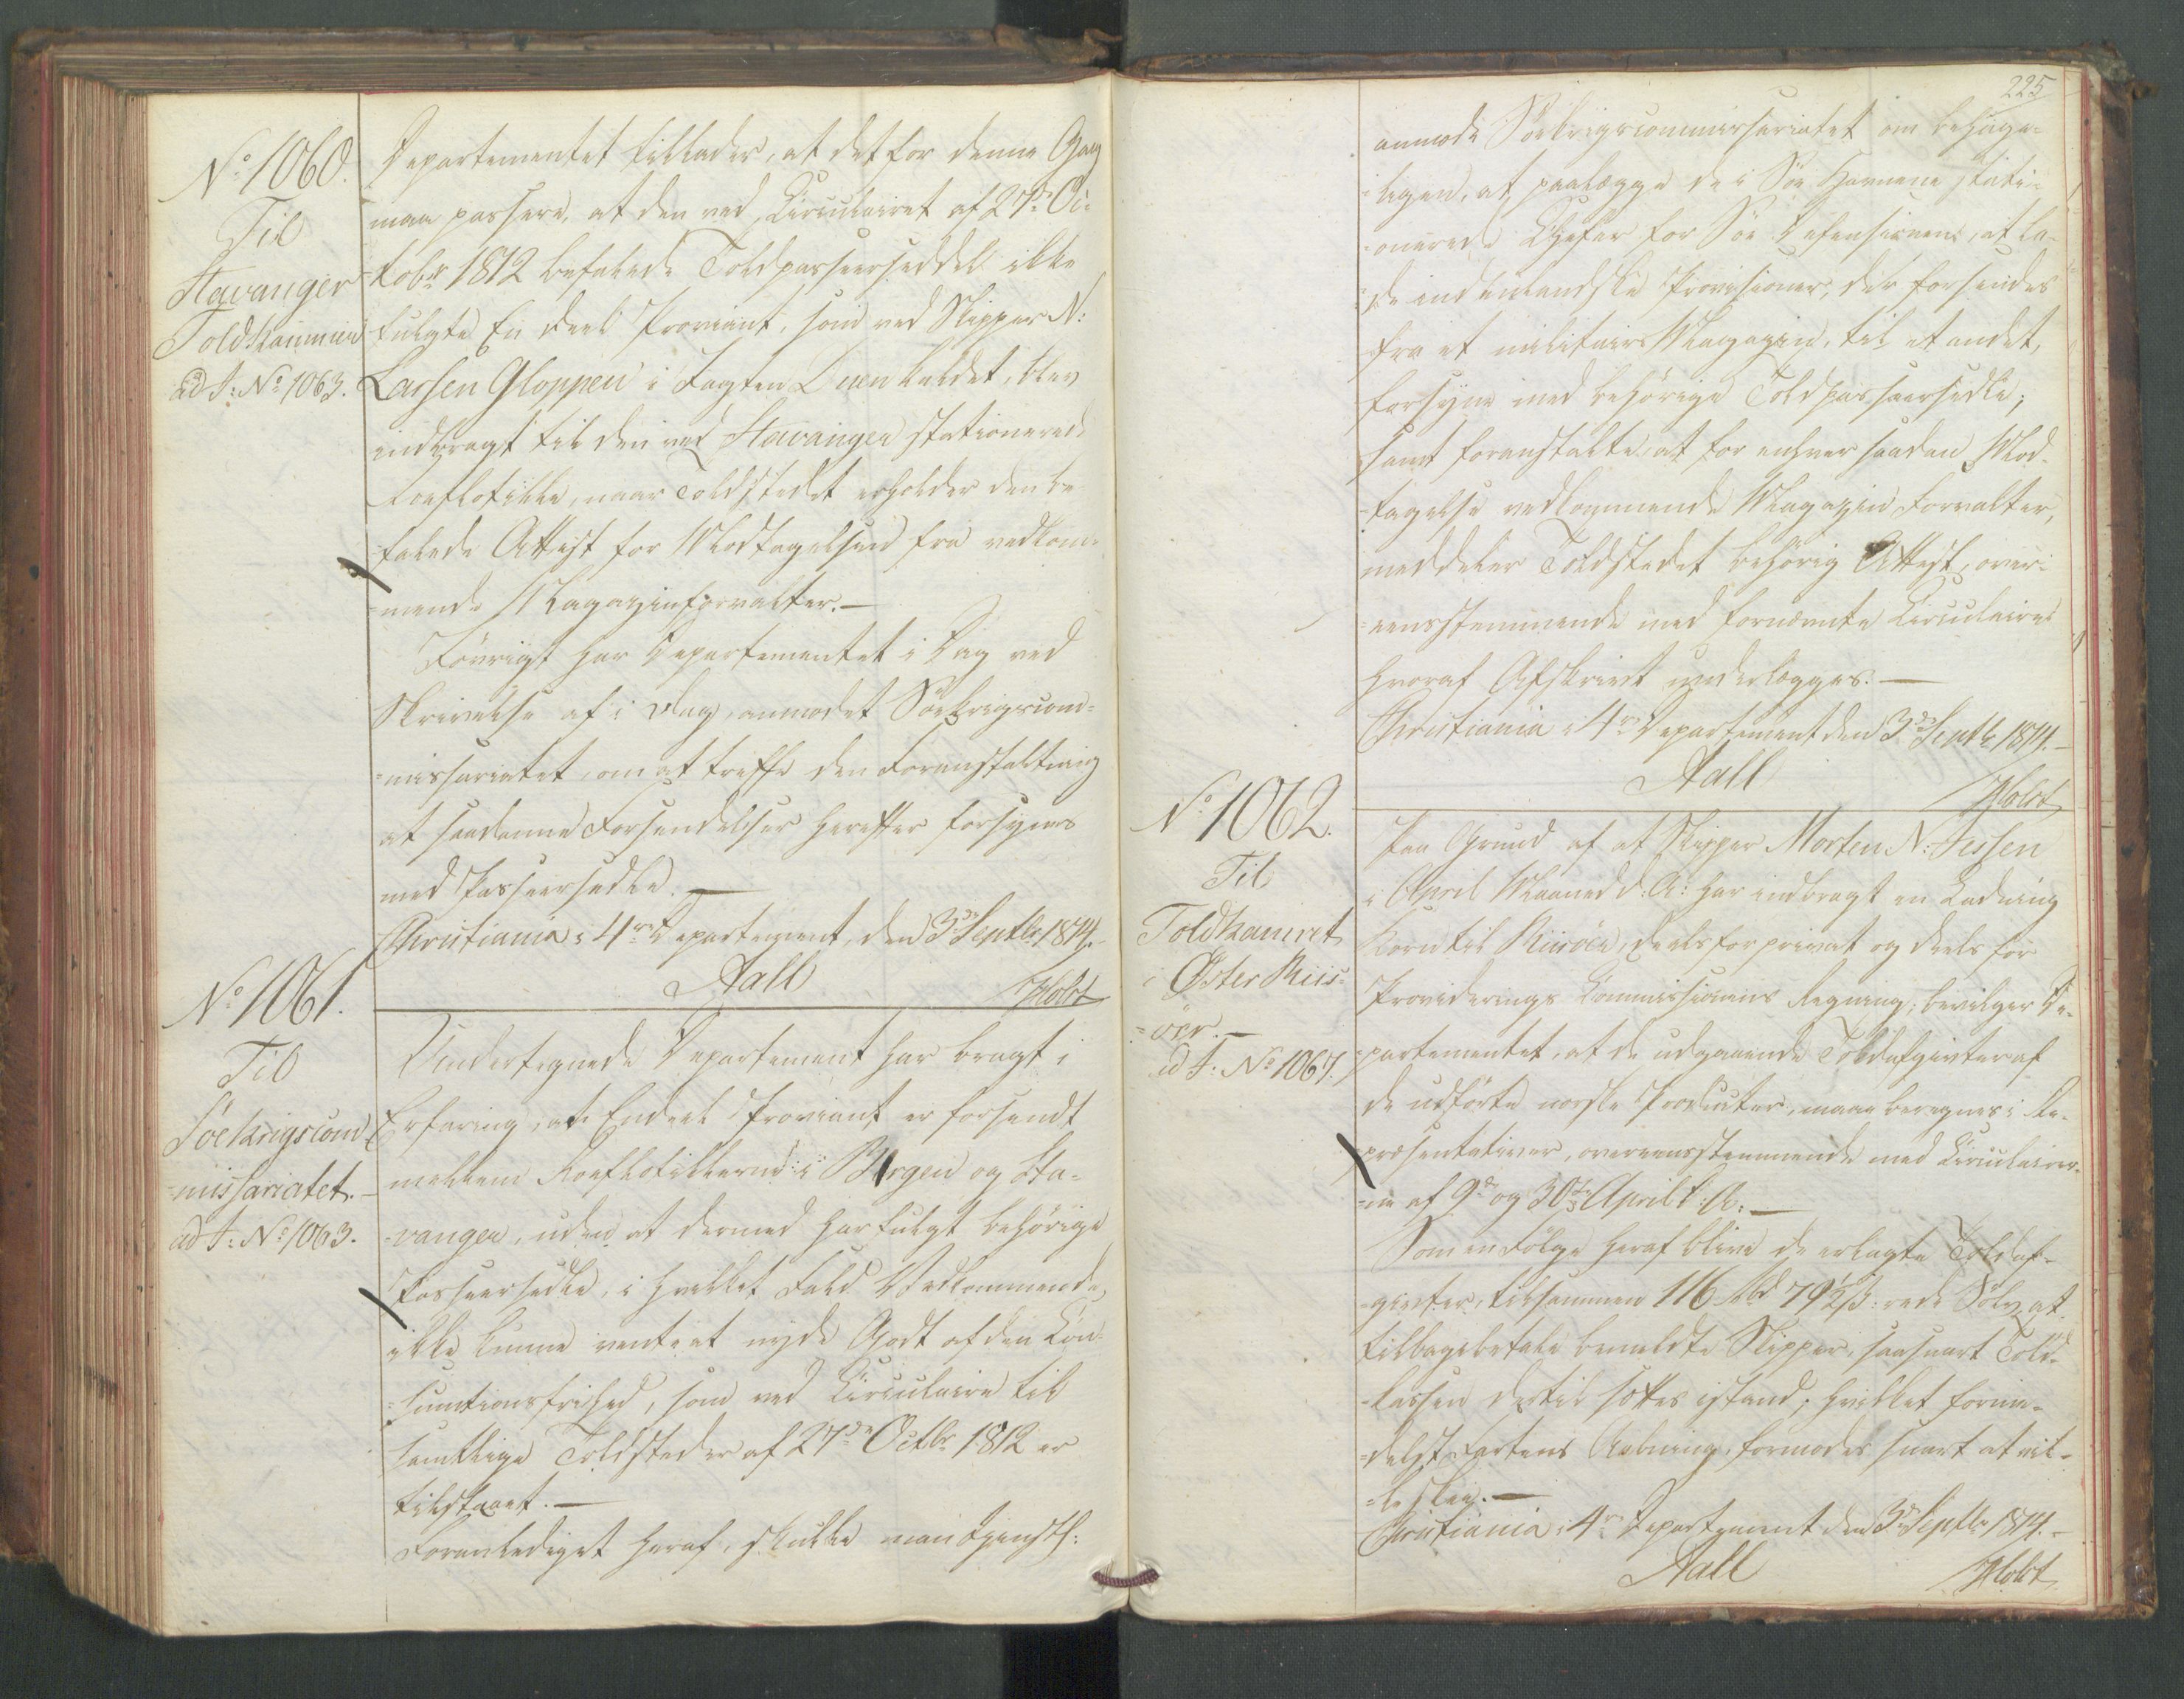 No 1060.
Til
Stavanger
Toldkammer
ad J: No 1063.
Departementet tillader, at det for denne Gang
maa passere, at den ved Circulairet af 27de Oc-
tobr 1812 befalede Toldpasseerseddel ikke
fulgte En deel Proviant, som ved Skipper N:
Larsen Gloppen i Jagten kaldet, blev
indbragt til den ved Stavanger stationerede
Roeflotille, naar Toldstedet erholder den be-
falede Attest for Modtagelsen fra vedkom-
=mende Magazinforvalter.—
Iövrigt har Departementet i Dag ved
Skrivelse af i Dag, anmodet Söekrigscom-
=missariatet, om at treffe den Foranstaltning
at saadanne Forsendelser herefter forsynes
med Passeersedle.—
Christiania i 4de Departement, den 3de Septbr 1814.
Aall
Holst
No 1061.
Til
Söekrigscom
=missariatet.—
ad J: No 1063.
Undertegnede Departement har bragt i
Erfaring, at Endeel Proviant er forsendt
mellem Roeflotillerne i Bergen og Sta-
=vanger, uden at dermed har fulgt behörige
Passeersedle, i hvilket Fald Vedkommende
ikke kunne vente at nyde Godt af den Con-
=sumtionsfrihed, som ved Circulaire til
samtlige Toldsteder af 27de Octbr 1812 er
tilstaaet.—
Foranlediget heraf, skulle man tjenstl:
225
anmode Söekrigscommissariatet om behage-
=ligen, at paalægge de i Söe Havnene stati-
=onerede Chefer for Söe Defensionen, at la-
=de indenlandske Provisioner, der forsendes
fra et militair Magazin, til et andet,
forsyne med behörige Toldpasseersedle;
samt foranstalte, at for enhver saadan Mod-
=tagelse vedkommende Magazin Forvalter,
meddeler Toldstedet behörig Attest, over-
=eensstemmende med fornævnte Circulaire
hvoraf Afskrivt vedlægges.—
Christiania i 4de Departement den 3de Septbr 1814.—
Aall
Holst
No 1062.
Til
Toldkamret
i Öster Riis-
=öer.—
ad J. No 1067.
Paa Grund af at Skipper Morten N: Jessen
i April Maaned d: A: har indbragt en Ladning
Korn til Riisöer, deels for privat og deels for
Providerings Commissionens Regning, bevilger De-
=partementet, at de udgaaende Toldafgivter af
de udförte norske Producter, maae beregnes i Re-
=præsentativer, overeensstemmende med Circulairer-
=ne af 9de og 30te April d. A:—
Som en Fölge heraf blive de erlagte Toldaf-
=givter, tilsammen 116 Rbd 79½ s: rede Sölv, at
tilbagebetale bemeldte Skipper, saasnart Told-
=kassen dertil sættes istand; hvilket forme-
=delst Fartens Aabning formodes snart at vil-
=le skee.—
Christiania i 4de Departement den 3de Septbr 1814.—
Aall
Holst